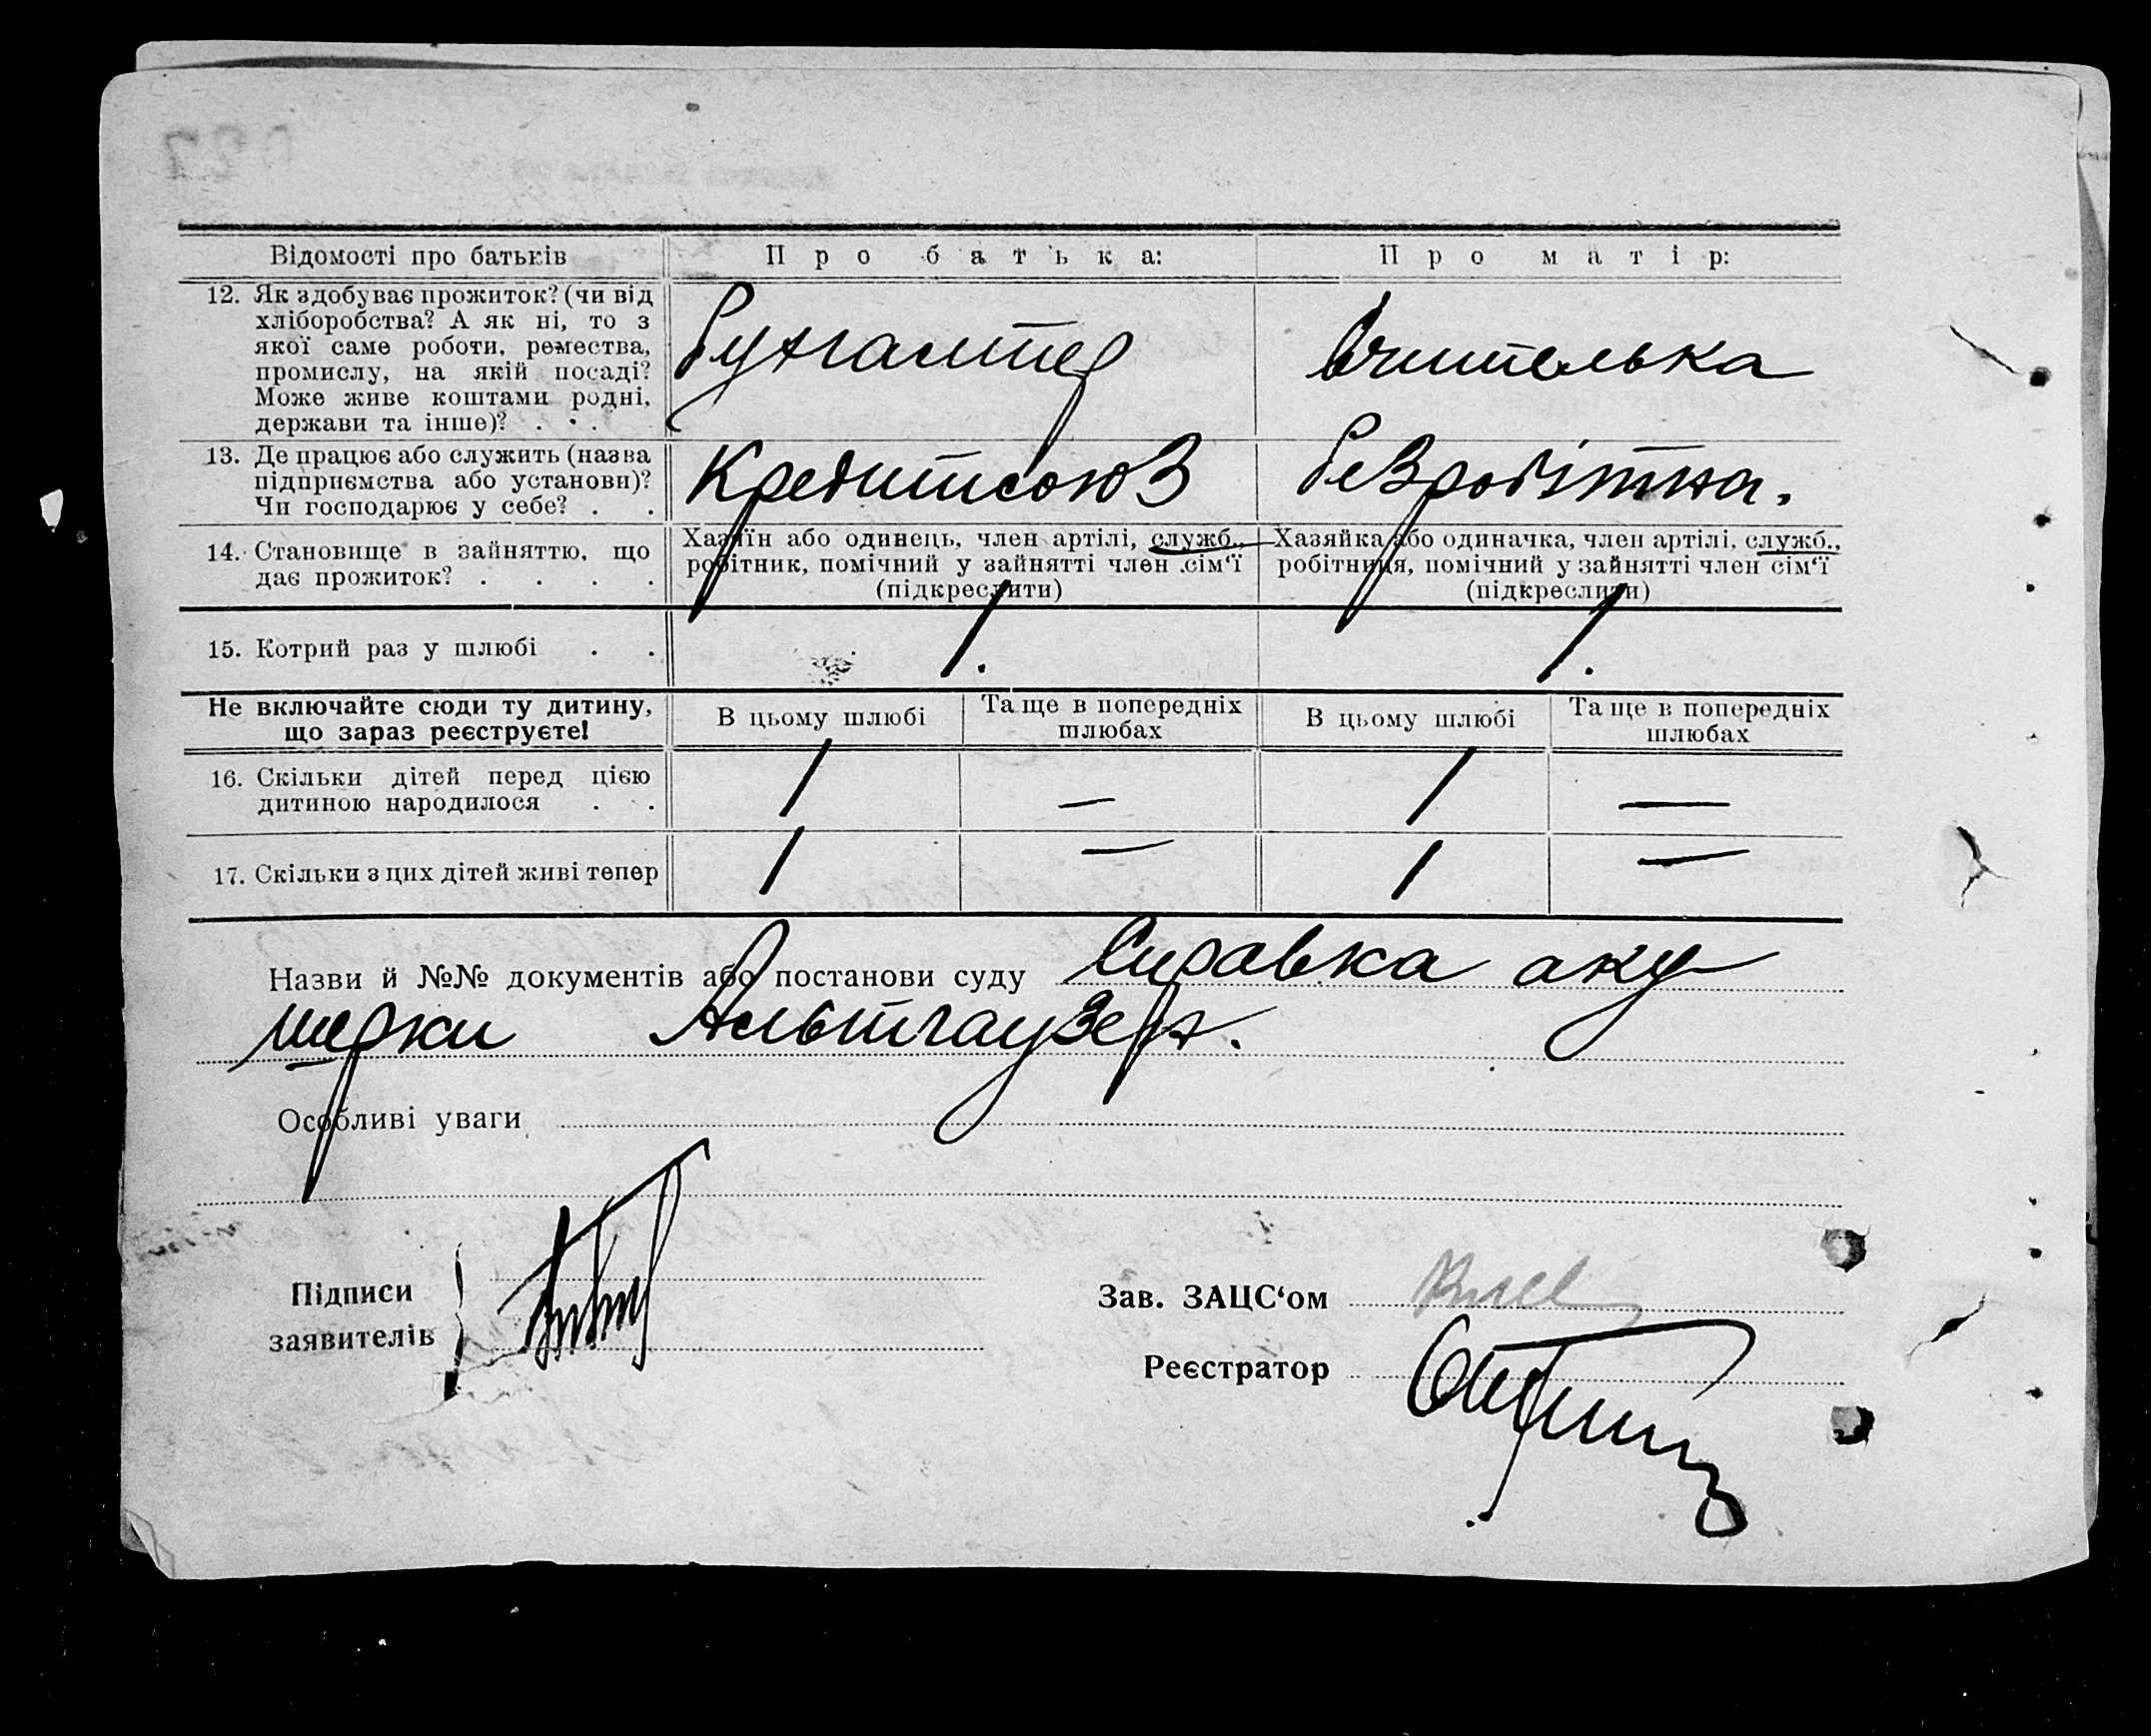 Відомості про батьків Про батька: Про матір:
12. Як здобуває прожиток? (чи від
хліборобства? А як ні, то з
якої саме роботи, ремества,
промислу, на якій посаді?
Може живе коштами родні,
держави та інше)? . . .
Бухгалтер
Вчителька
13. Де працює або служить (назва
підприємства або установи)?
Чи господарює у себе? . .
Кредитсоюз
безробітна.
14. Становище в зайняттю, що
дає прожиток? . . . .
Хазяїн або одинець, член артілі, служб.,
робітник, помічний у зайнятті член сім‘ї
(підкреслити)
Хазяйка або одиначка, член артілі, служб.,
робітниця, помічний у зайнятті член сім‘ї
(підкреслити)
15. Котрий раз у шлюбі . .
1. 1.
Не включайте сюди ту дитину,
що зараз реєструєте!
В цьому шлюбі
Та ще в попередніх
шлюбах
В цьому шлюбі
Та ще в попередніх
шлюбах
16. Скільки дітей перед цією
дитиною народилося . .
1 — 1 —
17. Скільки з цих дітей живі тепер
1 — 1 —
Назви й №№ документів або постанови суду Справка аку
шерки Альтгаузера.
Особливі уваги
Підписи
заявителів
Зав. ЗАЦС‘ом
Реєстратор